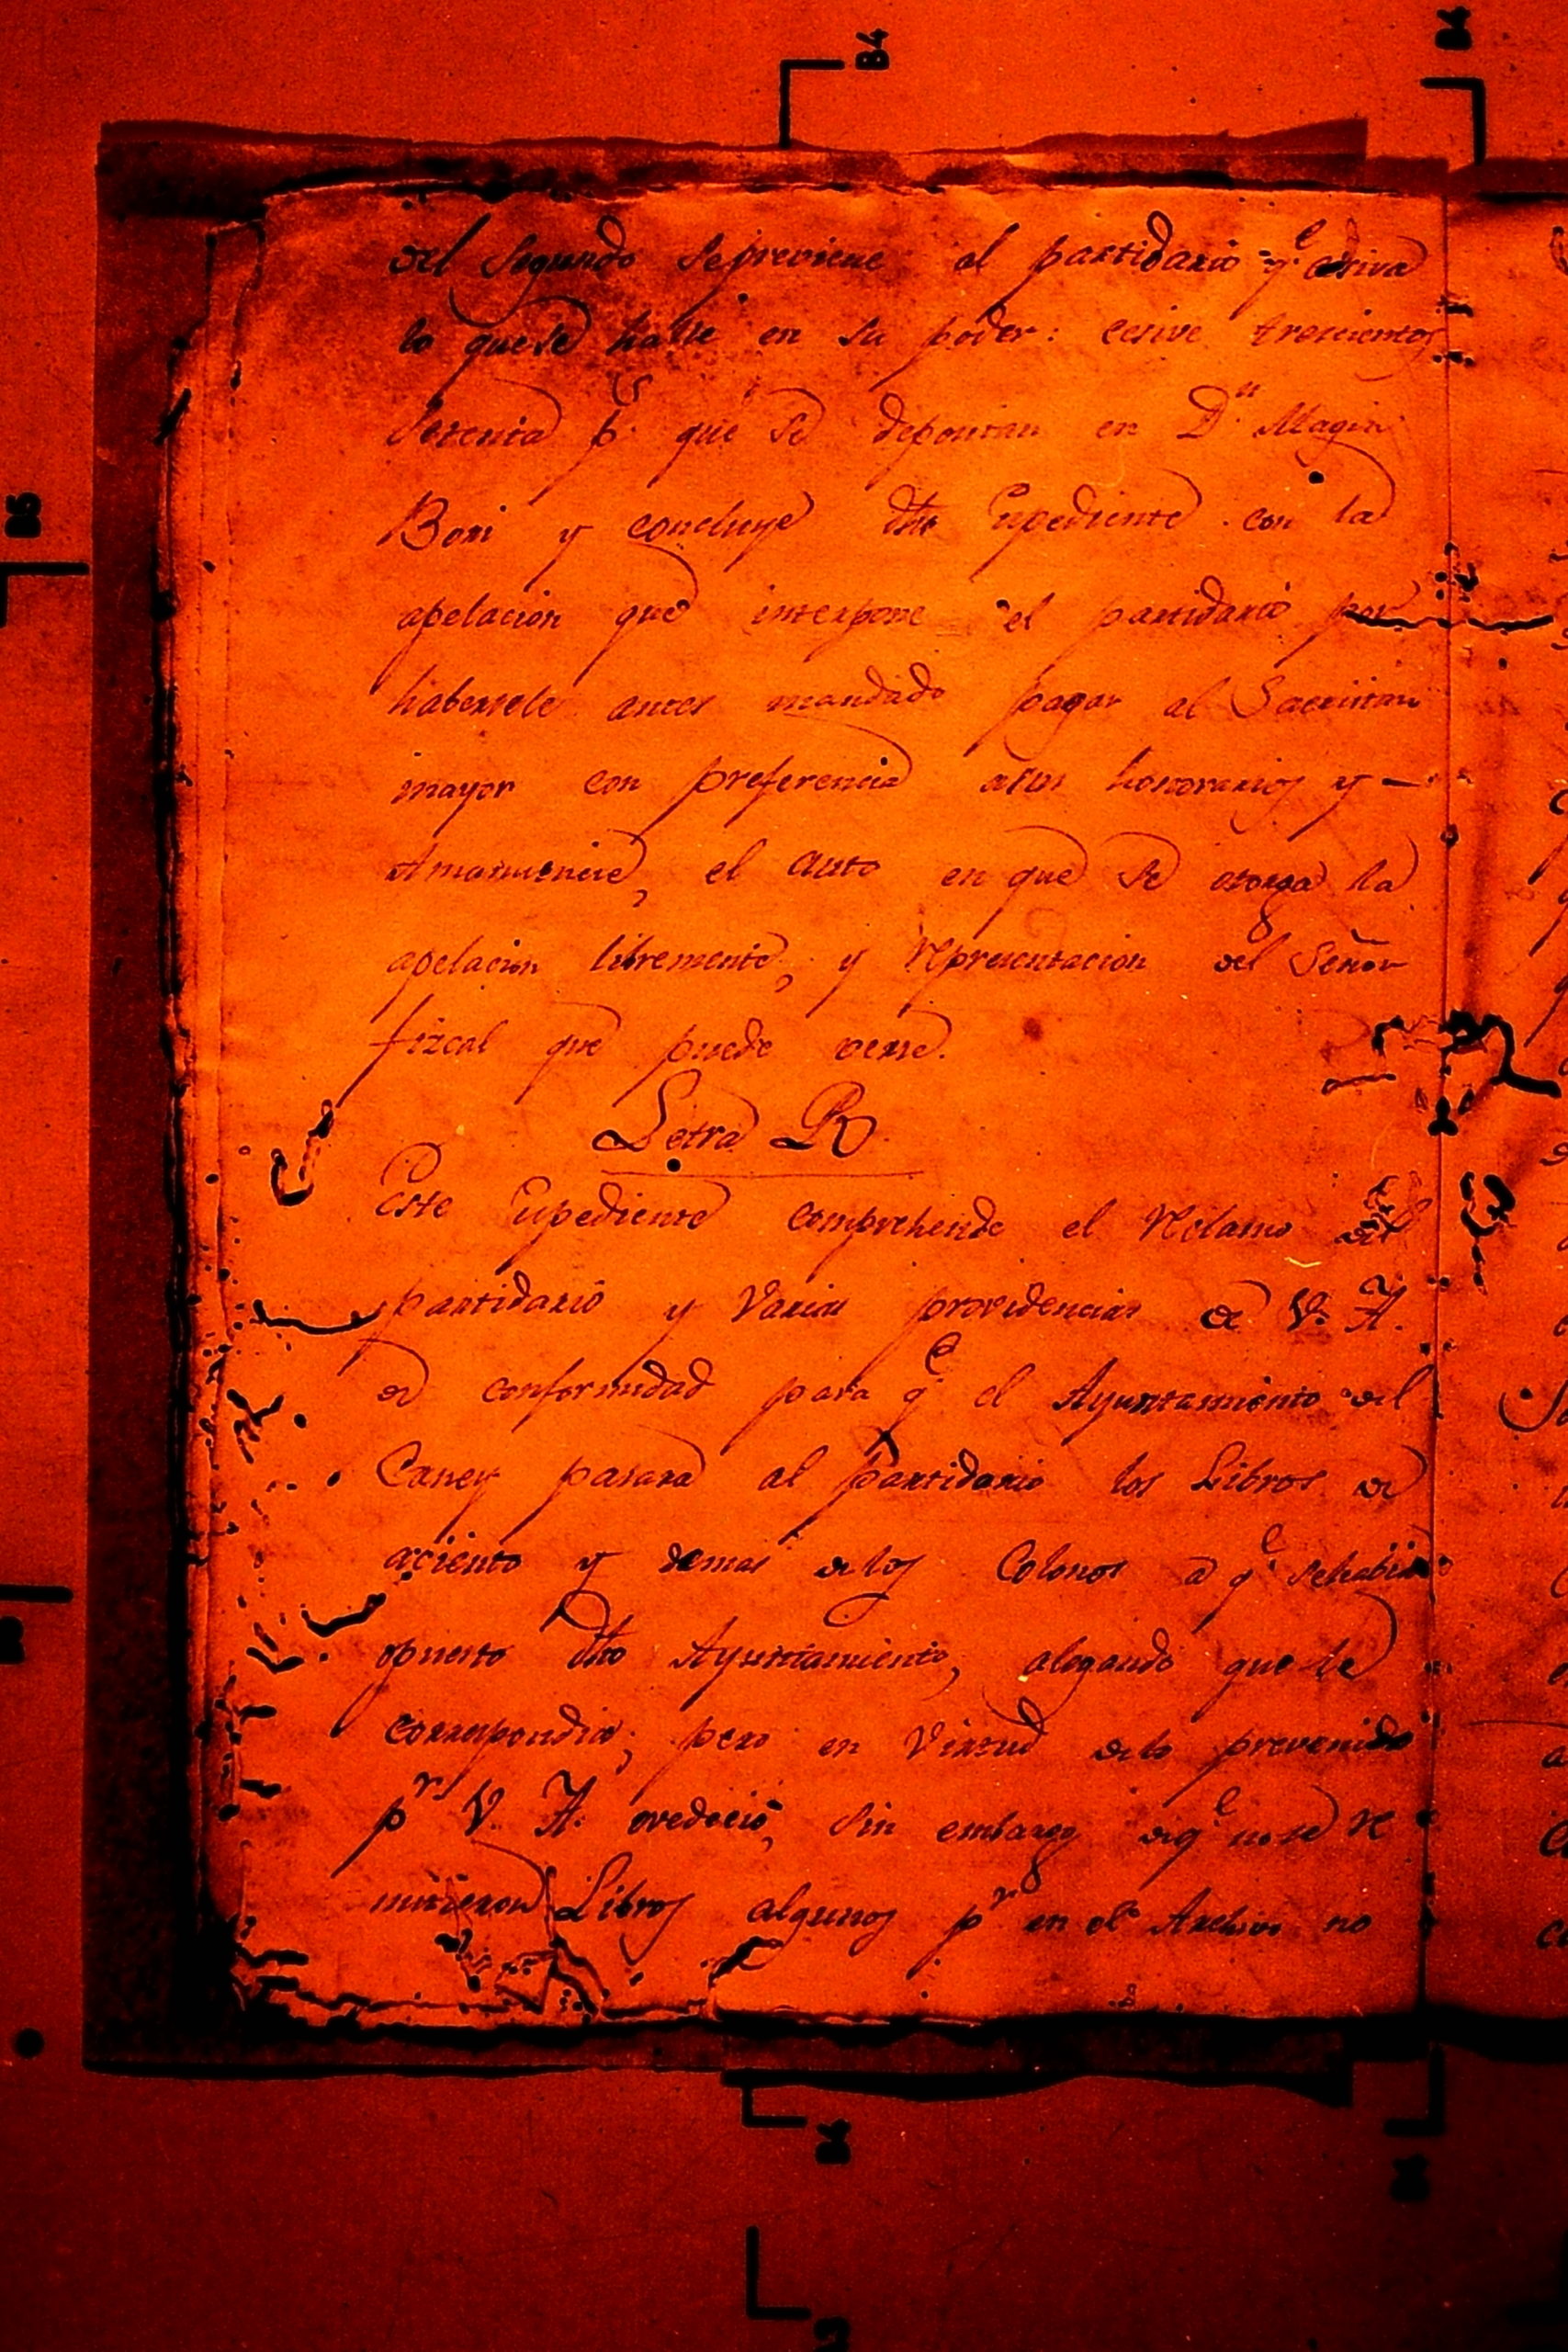 del Segundo se previene al partidario q.e
lo que se halle en su poder: trescientos
setenta p.s que se depositan en D.n Magin
Bori y concluye dho Expediente con la
apelacion que interpone el partidario por
habersele antes mandado pagar al Sacristan
mayor con preferencia asus honorarios y —
el auto en que se otorga la
apelacion libremente, y representacion del Señor
fizcal que puede verse.
Letra R
Este Expediente comprehende el reclamo del
partidario y varias providencias de V. A.
de conformidad para q.e el Ayuntamiento del
Caney pasara al partidario los Libros de
aciento y demas delos Colonos a q.e sehabia
opuesto dho Ayuntamiento, alegando que le
correspondia; pero en virtud delo prevenido
p.r V. A. ovedeció, sin embargo deq.e no se re
mitieron Libros algunos p.r q.e en el Archivo no
B4
B4
B5